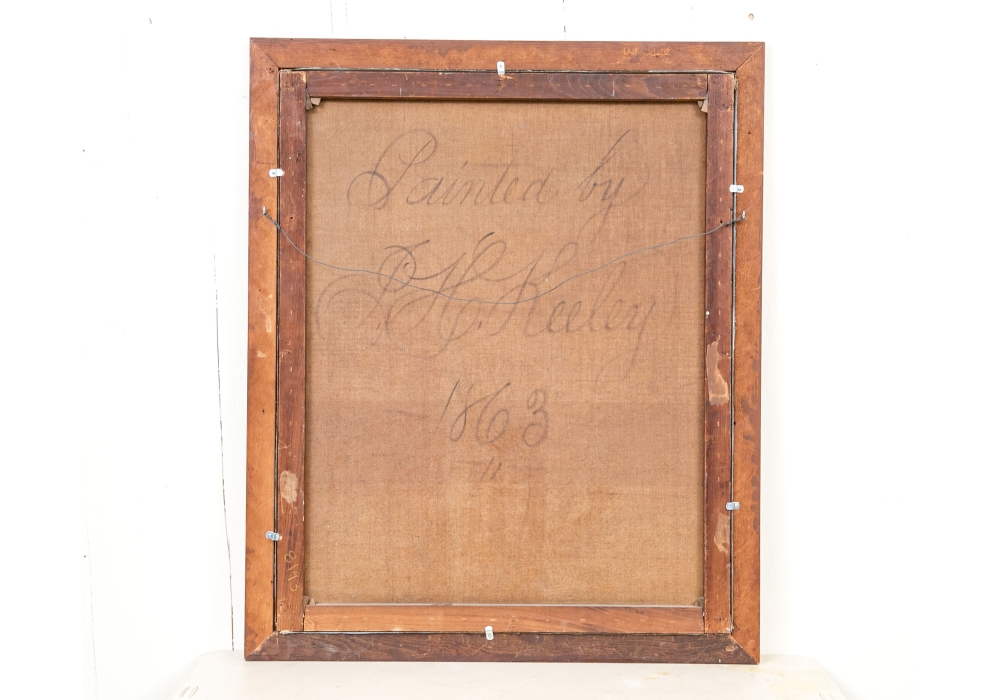 Painted by
P. H. Keeley
1863
"